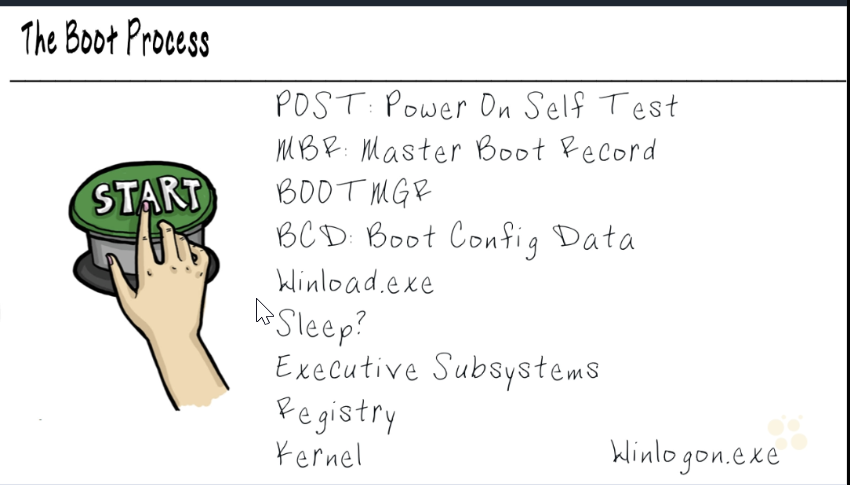 The Boot Process
POST: Power On Self Test
MBR: Master Boot Record
BOOTMGR
BCD: Boot Config Data
START
Winload.exe
Sleep?
Executive Subsystems
Registry
Kernel
Winlogon.exe